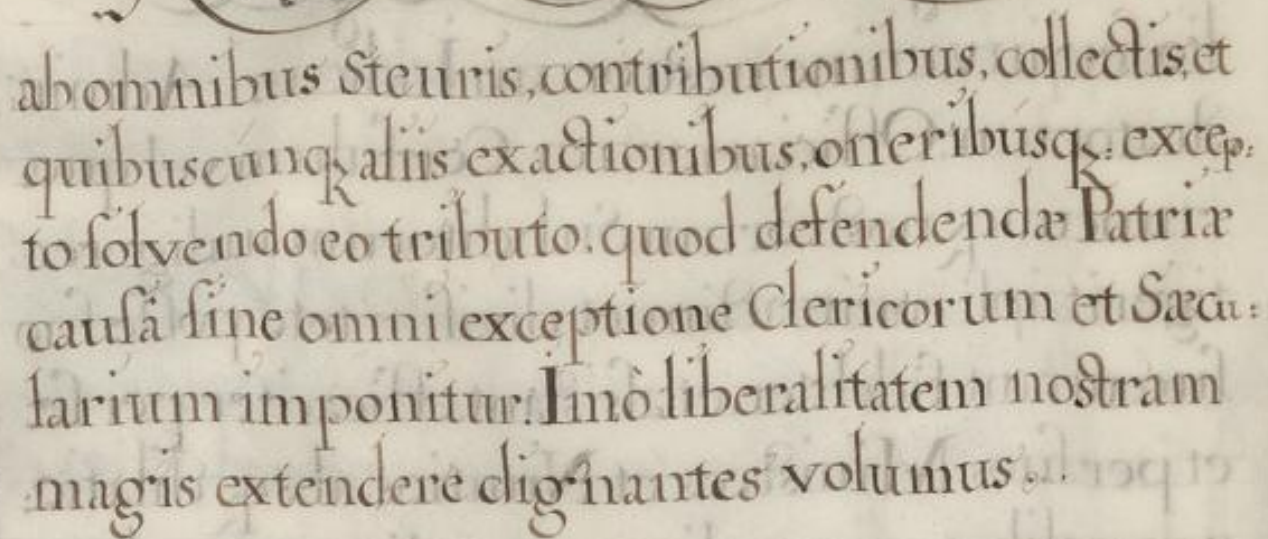 ab omnibus Steuris, contributionibus, collectis, et
quibuscunqꝫ aliis exactionibus, oneribusqꝫ: excep:
to ſolvendo eo tributo. quod defendendæ Patriæ
cauſâ ſine omni exceptione Clericorum et Sæcu:
larium imponitur. Imò liberalitatem nostram
magis extendere dignantes volumus.